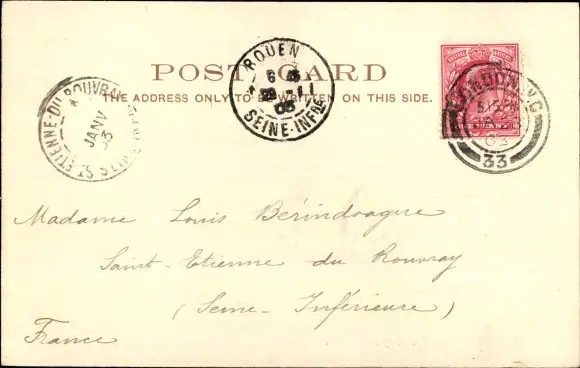 POST CARD
THE ADDRESS ONLY TO BE WRITTEN ON THIS SIDE.
ROUEN
6 45
29 -1
03
SEINE-INFRE
ST ETIENNE-DU-ROUVRAY
JANV
03
LONDON. W.C
03
33
Madame Louis Bérindoagne
Saint-Etienne du Rouvray
(Seine-Inférieure)
France